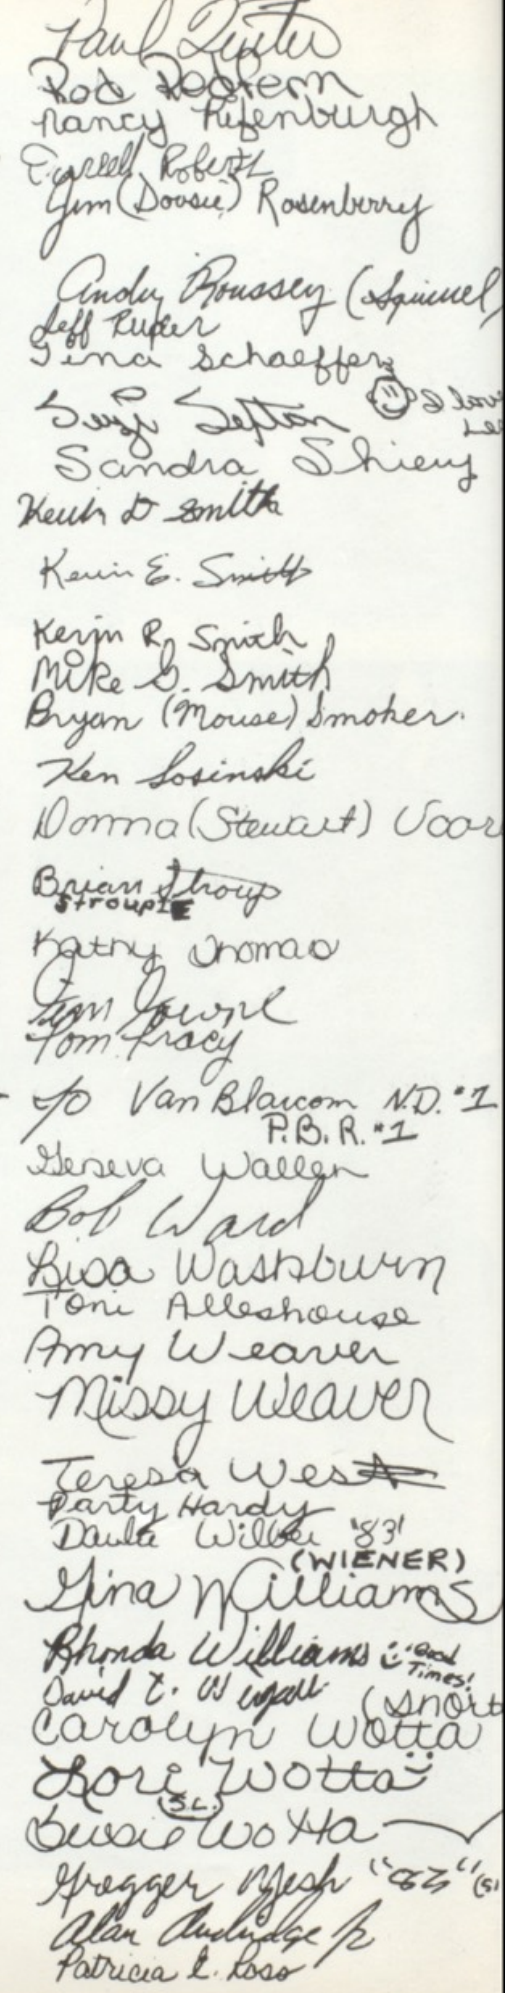 Paul
Rod Redfern
Nancy Rifenburgh
Darrell Roberts
Jim (Doosie) Rosenberry
Andy Roussey (Squirrel)
Jeff Ruper
Tina Schaeffer
Suzi Sefton I love
Sandra Shiery
Keith D Smith
Kevin E. Smith
Kevin R. Smith
Mike G. Smith
Bryan (Mouse) Smoker
Ken Sosinski
Donna (Stewart) Voor
Brian Stroup
STROUPIE
Kathy Thomas
Jim Towne
Tom Tracy
Jo Van Blaricom N.D. #1
P.B.R. #1
Geneva Wallen
Bob Ward
Lisa Washburn
Toni Alleshouse
Amy Weaver
Missy Weaver
Teresa West
Party Hardy
Wilber '83'
(WIENER)
Gina Williams
Rhonda Williams Good
Times!
David L.
(Snort
Carolyn Wotta
Lori Wotta
(S.L.)
Susie Wotta
Frogger "83"
Alan Andridge Jr
Patricia L. Ross